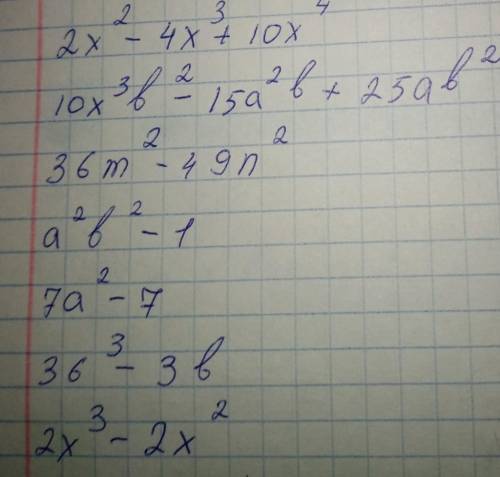 2x² - 4x³ + 10x⁴
10x³b² - 15a²b + 25ab²
36m² - 49n²
a²b² - 1
7a² - 7
36³ - 3b
2x³ - 2x²